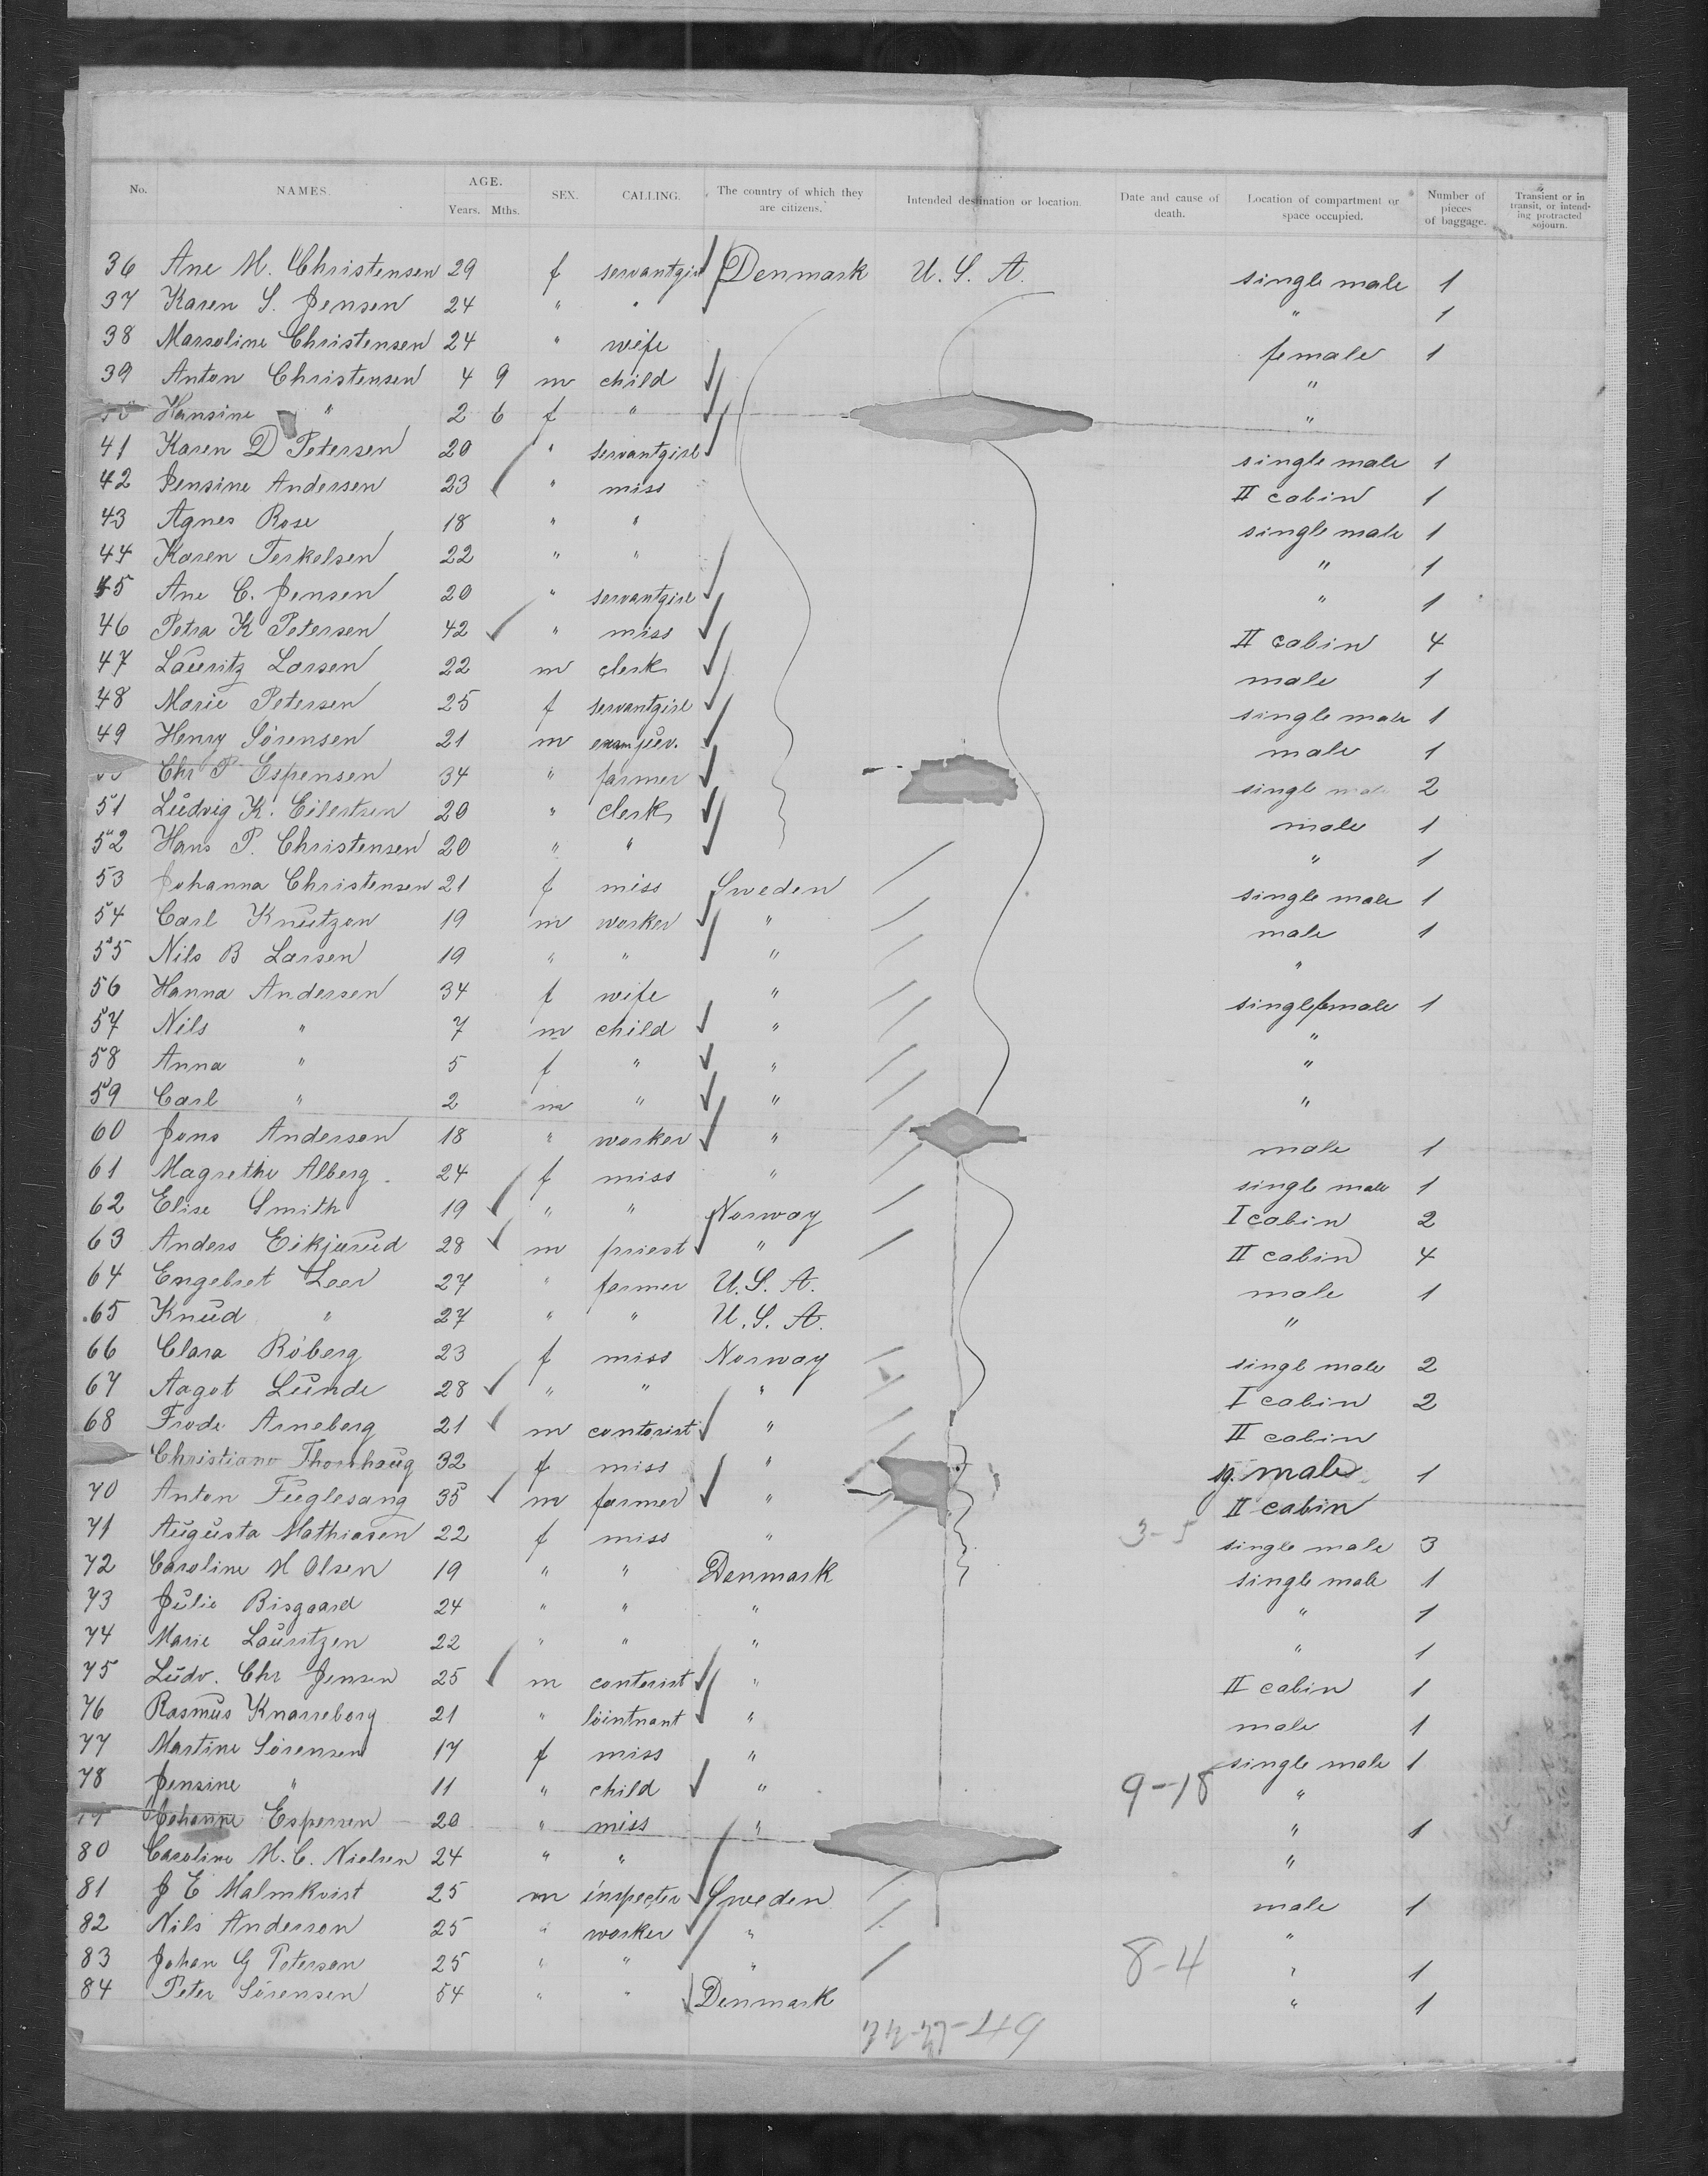 No. NAMES. AGE. Years. Mths. SEX. CALLING. The country of which they are citizens. Intended destination or location. Date and cause of death. Location of compartment or space occupied. Number of pieces of baggage. Transient or in transit, or intending protracted sojourn.
36 Ane M. Christensen 29 f servantgirl Denmark U. S. A. single male 1
37 Karen S. Jensen 24 " " " 1
38 Marsoline Christensen 24 " wife female 1
39 Anton Christensen 4 9 m child "
Hansine " 2 6 f " "
41 Karen D Petersen 20 " servantgirl single male 1
42 Jensine Andersen 23 " miss II cabin 1
43 Agnes Rose 18 " " single male 1
44 Karen Terkelsen 22 " " " 1
45 Ane C. Jensen 20 " servantgirl " 1
46 Petra K Petersen 42 " miss II cabin 4
47 Lauritz Larsen 22 m clerk male 1
48 Marie Petersen 25 f servantgirl single male 1
49 Henry Sörensen 21 m male 1
Chr P Espensen 34 " farmer single male 2
51 Ludvig K. Eilertsen 20 " clerk male 1
52 Hans P. Christensen 20 " " " 1
53 Johanna Christensen 21 f miss Sweden single male 1
54 Carl Knutzon 19 m worker " male 1
55 Nils B Larsen 19 " " " "
56 Hanna Andersen 34 f wife " single female 1
57 Nils " 7 m child " "
58 Anna " 5 f " " "
59 Carl " 2 m " " "
60 Jons Andersen 18 " worker " male 1
61 Magrethe Alberg 24 f miss " single male 1
62 Elise Smith 19 " " Norway I cabin 2
63 Anders Eikjarud 28 m priest " II cabin 4
64 Engebret Loer 27 " farmer U. S. A. male 1
65 Knud " 27 " " U. S. A. "
66 Clara Röberg 23 f miss Norway singl male 2
67 Aagot Lunde 28 " " " I cabin 2
68 Frode Arneberg 21 m contorist " II cabin
Christiane Thorshaug 32 f miss " sg. male 1
70 Anton Fuglesang 35 m farmer " II cabin
71 Augusta Mathiasen 22 f miss " 3-5 single male 3
72 Caroline M Olsen 19 " " Denmark single male 1
73 Julie Bisgaard 24 " " " " 1
74 Marie Lauritzen 22 " " " " 1
75 Ludv. Chr Jensen 25 m contorist " II cabin 1
76 Rasmus Knarreborg 21 " löintnant " male 1
77 Martine Sörensen 17 f miss " single male 1
78 Jensine " 11 " child " 9-18 "
79 Johanne Espersen 20 " miss " " 1
80 Caroline M. C. Nielsen 24 " " "
81 J E Malmkvist 25 m inspecter Sweden male 1
82 Nils Andersson 25 " worker " "
83 Johan G Peterson 25 " " " 8-4 " 1
84 Peter Sörensen 54 " " Denmark " 1